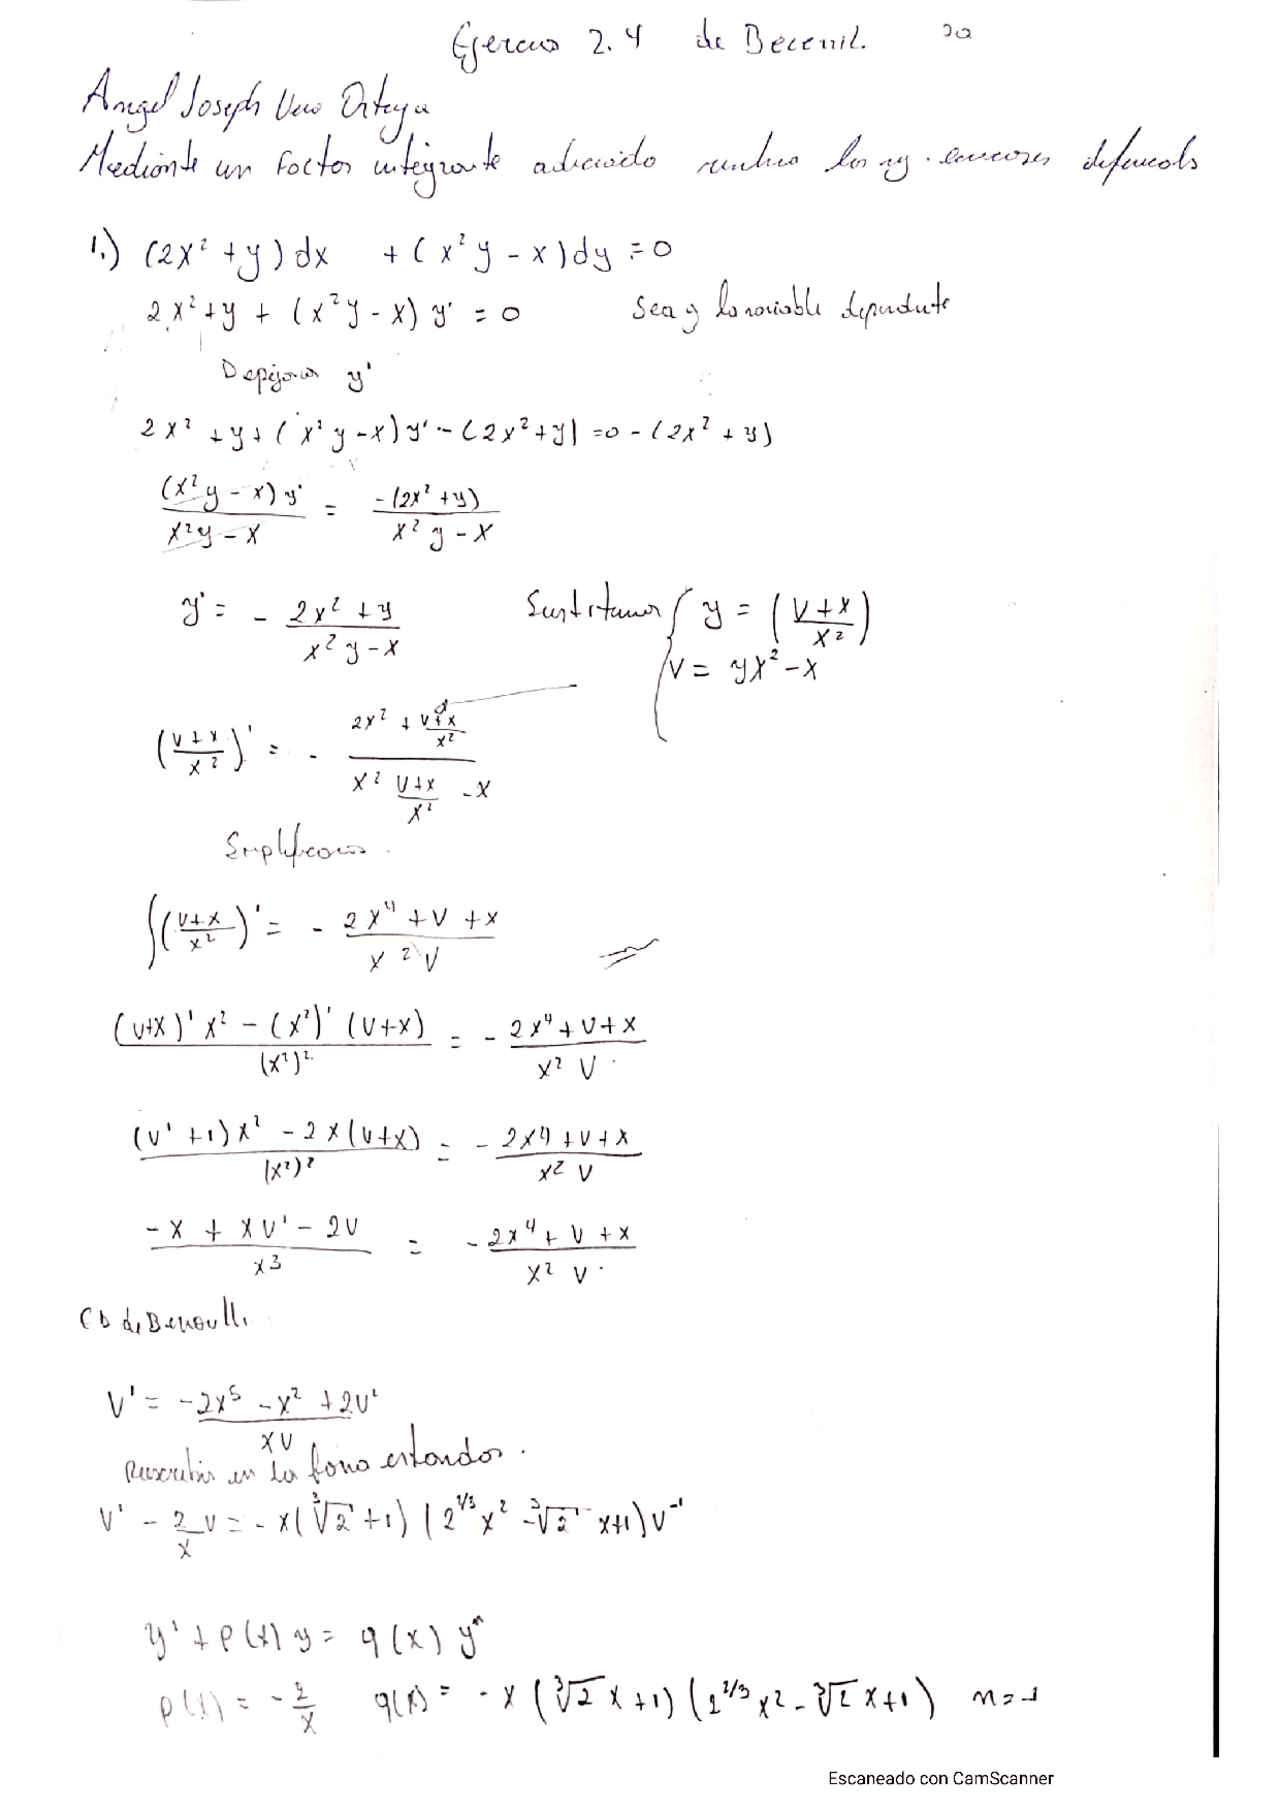 Ejercicio 2.4 de Becerril.
Angel Joseph Vera Ortega
Mediante un factor integrante adecuado
1.) (2x² + y)dx + (x²y - x)dy = 0
2x² + y + (x²y - x) y' = 0 Sea y la variable dependiente
Despejar y'
2x² + y + (x²y - x)y' - (2x² + y) = 0 - (2x² + y)
(x²y - x)y' / x²y - x = -(2x² + y) / x²y - x
y' = - 2x² + y / x²y - x Sustituimos { y = (v + x / x²)
v = yx² - x
(v + x / x²)' = - 2x² + v + x / x² / x² v + x / x² - x
Simplificamos.
∫(v + x / x²)' = - 2x⁴ + v + x / x² v
(v+x)' x² - (x²)' (v+x) / (x²)² = - 2x⁴ + v + x / x² v
(v' + 1)x² - 2x(v+x) / (x²)² = - 2x⁴ + v + x / x² v
-x + xv' - 2v / x³ = - 2x⁴ + v + x / x² v
ED de Bernoulli
v' = -2x⁵ - x² + 2v² / xv
Rescribir en la forma estandar.
v' - 2/x v = - x(∛2 + 1) (2^1/3 x² - ∛2 x + 1) v⁻¹
y' + p(x) y = q(x) yⁿ
p(x) = - 2/x q(x) = - x (∛2 x + 1) (2^2/3 x² - ∛2 x + 1) n = -1
Escaneado con CamScanner